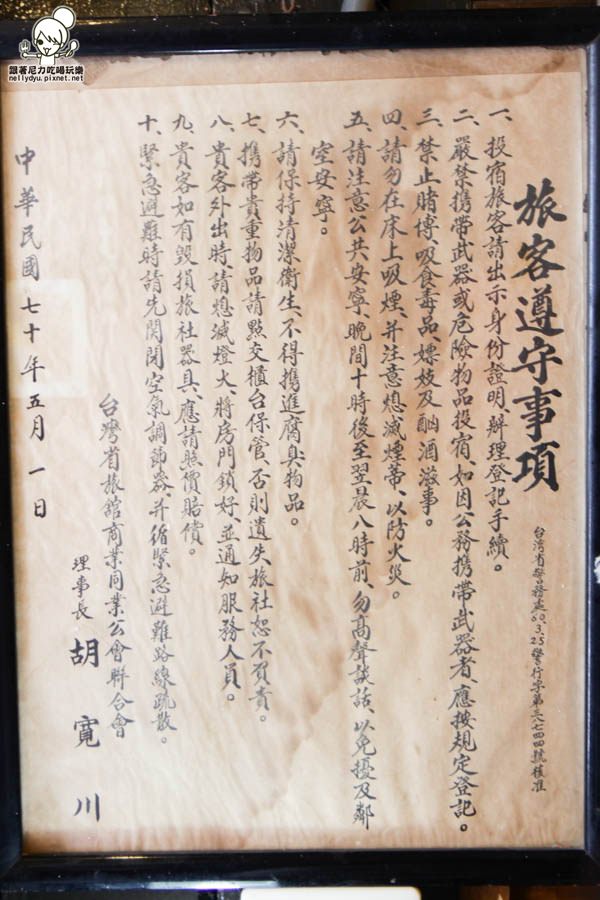 跟著尼力吃喝玩樂
nellydyu.pixnet.net
旅客遵守事項
台湾省警務處60.3.25警行字第三八七四四號核准
一、投宿旅客請出示身份證明、辦理登記手續。
二、嚴禁携帶武器或危險物品投宿、如因公務携帶武器者、應按規定登記。
三、禁止賭博、吸食毒品、嫖妓及酗酒滋事。
四、請勿在床上吸煙、并注意熄滅煙蒂、以防火災。
五、請注意公共安寧、晚間十時後至翌晨八時前、勿高聲談話、以免擾及鄰
室安寧。
六、請保持清潔衛生、不得攜進腐臭物品。
七、攜帶貴重物品請點交櫃台保管、否則遺失旅社恕不負責。
八、貴客外出時請熄滅燈火、將房門鎖好、並通知服務人員。
九、貴客如有毀損旅社器具、應請照價賠償。
十、緊急避難時請先関閉空氣調節器、并循緊急避難路線疏散。
台灣省旅舘商業同業公會聯合會
理事長 胡寬川
中華民國七十年五月一日